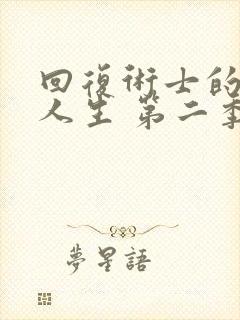 回復術士的
人生 第二季
夢星語